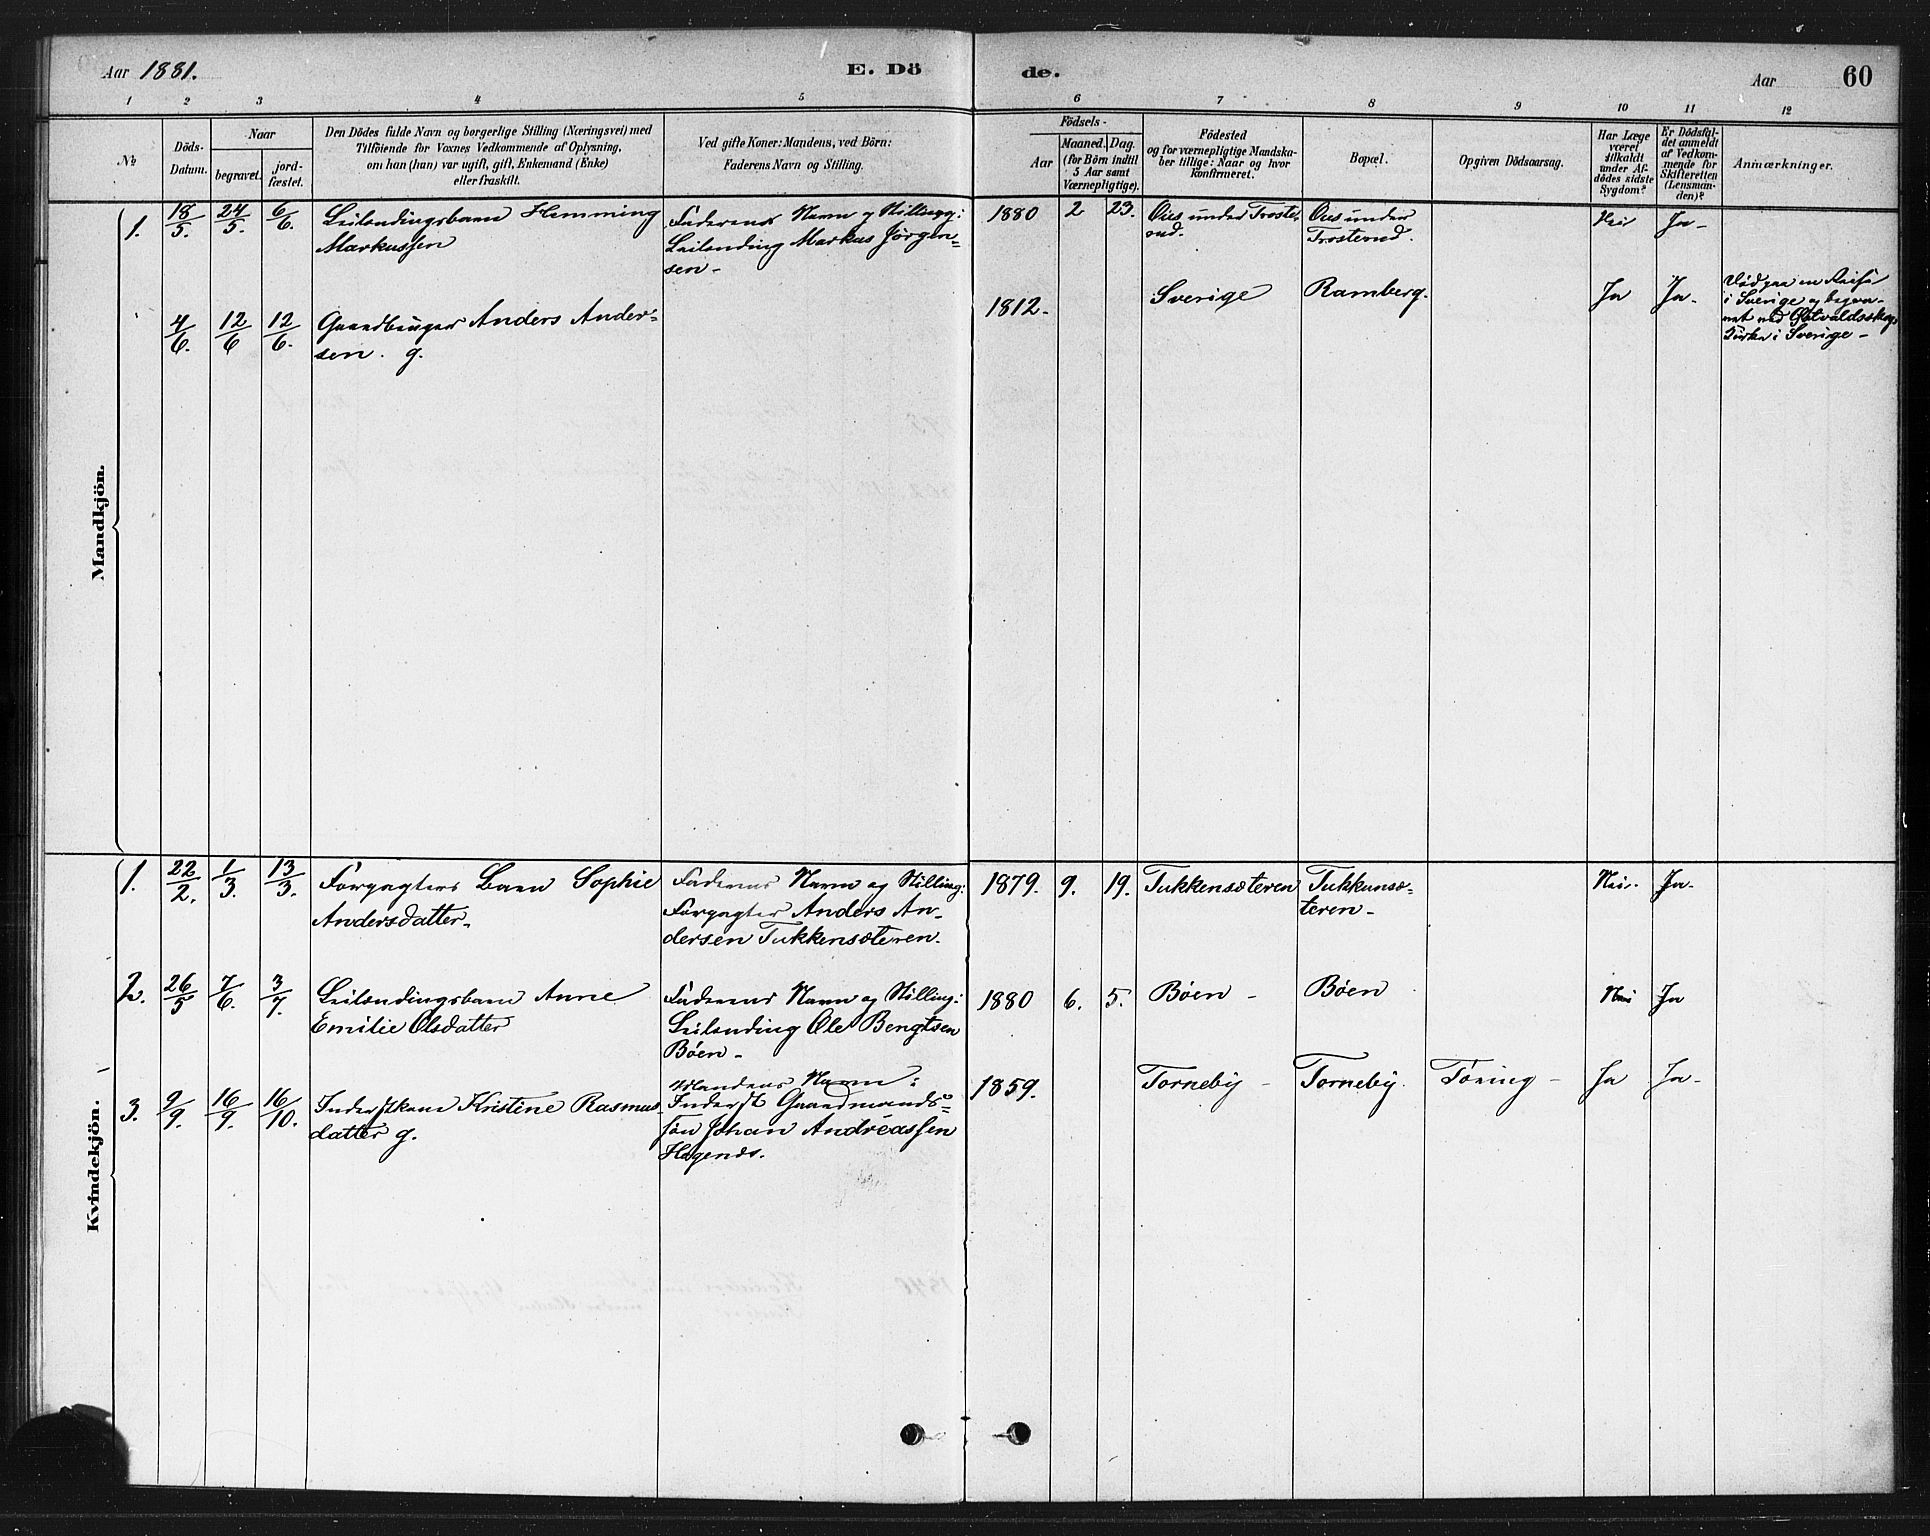 Aar 1881.
E. Dö
de.
Aar
60
1 2 3 4 5 6 7 8 9 10 11 12
No
Döds-
Datum.
Naar
begravet.
jord-
fæstet.
Den Dödes fulde Navn og borgerlige Stilling (Næringsvei) med
Tilföiende för Voxnes Vedkommende af Oplysning,
om han (hun) var ugift, gift, Enkemand (Enke)
eller fraskilt.
Ved gifte Koner: Mandens, ved Börn:
Faderens Navn og Stilling.
Födsels-
Aar
Maaned. Dag.
(for Börn indtil
5 Aar samt
Værnepligtige).
Födested
og for værnepligtige Mandska-
ber tillige: Naar og hvor
konfirmeret.
Bopæl.
Opgiven Dödsaarsag.
Har Læge
været
tilkaldt
under Af-
dödes sidste
Sygdom?
Er Dödsfal-
det anmeldt
af Vedkom-
mende for
Skifteretten
(Lensman-
den)?
Anmærkninger.
Mandkjön.
1. 18/5. 24/5. 6/6. Leilændingsbarn Hemming
Markussen
Faderens Navn og Stilling:
Leilending Markus Jörgen=
sen -
1880 2 23. Oies under Troste
rud.
Oies under
Trosterud.
Nei Ja -
4/6. 12/6 12/6. Gaardbruger Anders Ander=
sen. g.
1812. Sverige Ramberg. Ja Ja.
Död paa en Reise
i Sverige og begra-
vet ved
Kirke i Sverige -
Kvindekjön.
1. 22/2. 1/3. 13/3. Forpagters Barn Sophie
Andersdatter.
Faderens Navn og Stilling:
Forpagter Anders An-
dersen Tukkensæteren.
1879. 9. 19. Tukkensæteren Tukkensæ=
teren -
Nei. Ja.
2. 26/5 7/6. 3/7. Leilændingsbarn Anne
Emilie Olsdatter
Faderens Navn og Stilling:
Leilending Ole Bengtsen
Böen -
1880 6. 5. Böen - Böen Nei Ja
3. 9/9. 16/9. 16/10. Inderstkone Kristine Rasmus
datter g.
Mandens Navn:
Inderst Gaardmands=
sön Johan Andreassen
1859. Torneby - Torneby. Tæring - Ja Ja -